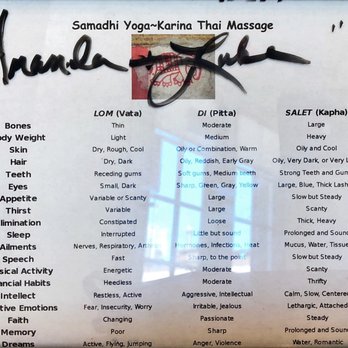 Samadhi Yoga~Karina Thai Massage
LOM (Vata) DI (Pitta) SALET (Kapha)
Bones Thin Moderate Large
ody Weight Light Medium Heavy
Skin Dry, Rough, Cool Oily or Combination, Warm Oily and Cool
Hair Dry, Dark Oily, Reddish, Early Gray Oily, Very Dark, or Very L
Teeth Receding gums Soft gums, Medium teeth Strong Teeth and Gum
Eyes Small, Dark Sharp, Green, Gray, Yellow Large, Blue, Thick Lash
Appetite Variable or Scanty Large Slow but Steady
Thirst Variable Large Scanty
limination Constipated Loose Thick, Heavy
Sleep Interrupted Little but sound Prolonged and Sound
Ailments Nerves, Respiratory, Arthri Hormones, Infections, Heat Mucus, Water, Tissue
Speech Fast Sharp, to the point Slow but Steady
ysical Activity Energetic Moderate Scanty
nancial Habits Hesitant Moderate Thrifty
Intellect Restless, Active Aggressive, Intellectual Calm, Slow, Centered
tive Emotions Fear, Insecurity, Worry Irritable, Jealous Lethargic, Attached
Faith Changing Passionate Steady
Memory Poor Sharp Prolonged and Sound
Dreams Active, Flying, Jumping Anger, Violence Water, Romantic